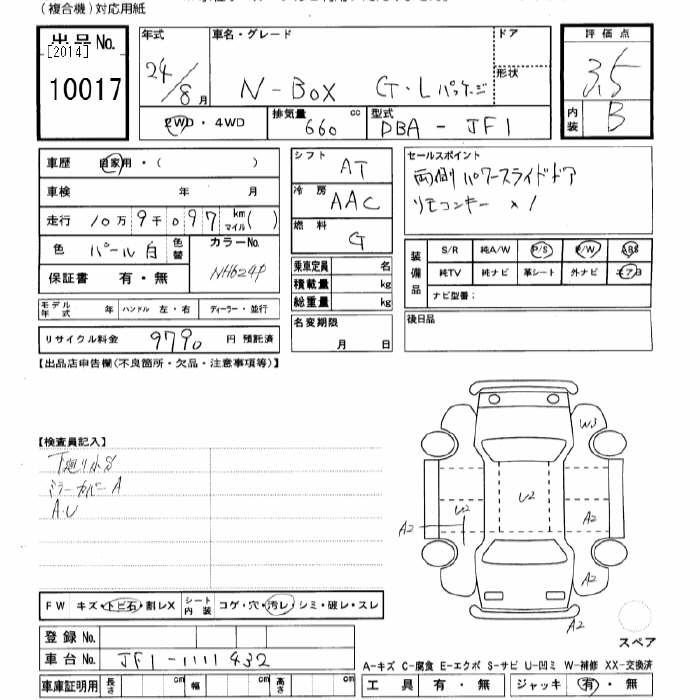 (複合機)対応用紙
出品No.
[2014]
10017
年式
24/8月
車名・グレード
N-BOX G・Lパッケージ
ドア
形状
評価点
3.5
内装
B
2WD・4WD
排気量 660 cc
型式 DBA-JF1
車歴 自家用・( )
車検 年 月
走行 10万9千097 km マイル( )
色 パール白
色替
カラーNo. NH624P
保証書 有・無
モデル年式 年
ハンドル 左・右
ディーラー・並行
リサイクル料金 9790 円 預託済
シフト AT
冷房 AAC
燃料 G
乗車定員 名
積載量 kg
総重量 kg
名変期限
月 日
セールスポイント
両側パワースライドドア
リモコンキー ×1
装備品
S/R 純A/W P/S P/W ABS
純TV 純ナビ 革シート 外ナビ エアB
ナビ型番:
後日品
【出品店申告欄(不良箇所・欠品・注意事項等)】
【検査員記入】
下廻り小S
ミラーカバーA
A.U
W3
U2
U2
A2
A2
A2
A2
スペア
FW キズ・トビ石・割レX
シート内装 コゲ・穴・汚レ・シミ・破レ・スレ
登録No.
車台No. JF1-1111432
車庫証明用 長さ cm 幅 cm 高さ cm
A-キズ C-腐食 E-エクボ S-サビ U-凹ミ W-補修 XX-交換済
工具 有・無 ジャッキ 有・無